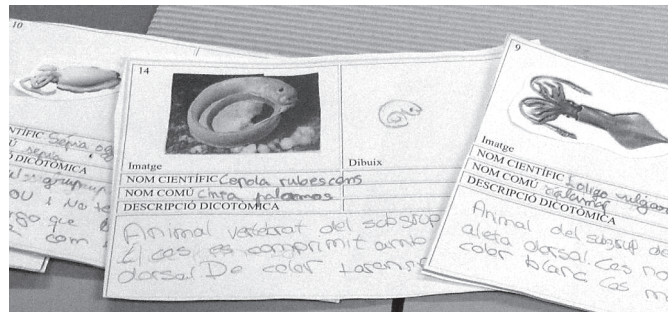 10
NTÍFIC Sepia
sepia
DICOTÒMICA
14
Imatge
Dibuix
NOM CIENTÍFIC Cepola rubescens
NOM COMÚ Cinta palomos
DESCRIPCIÓ DICOTÒMICA
Animal vertebrat del subgrup
comprimit amb
dorsal De color
9
Imatge
NOM CIENTÍFIC Loligo vulgar
NOM COMÚ calamar
DESCRIPCIÓ DICOTÒMICA
Animal del subgrup de
aleta dorsal. Cos no
color blanc Cos m